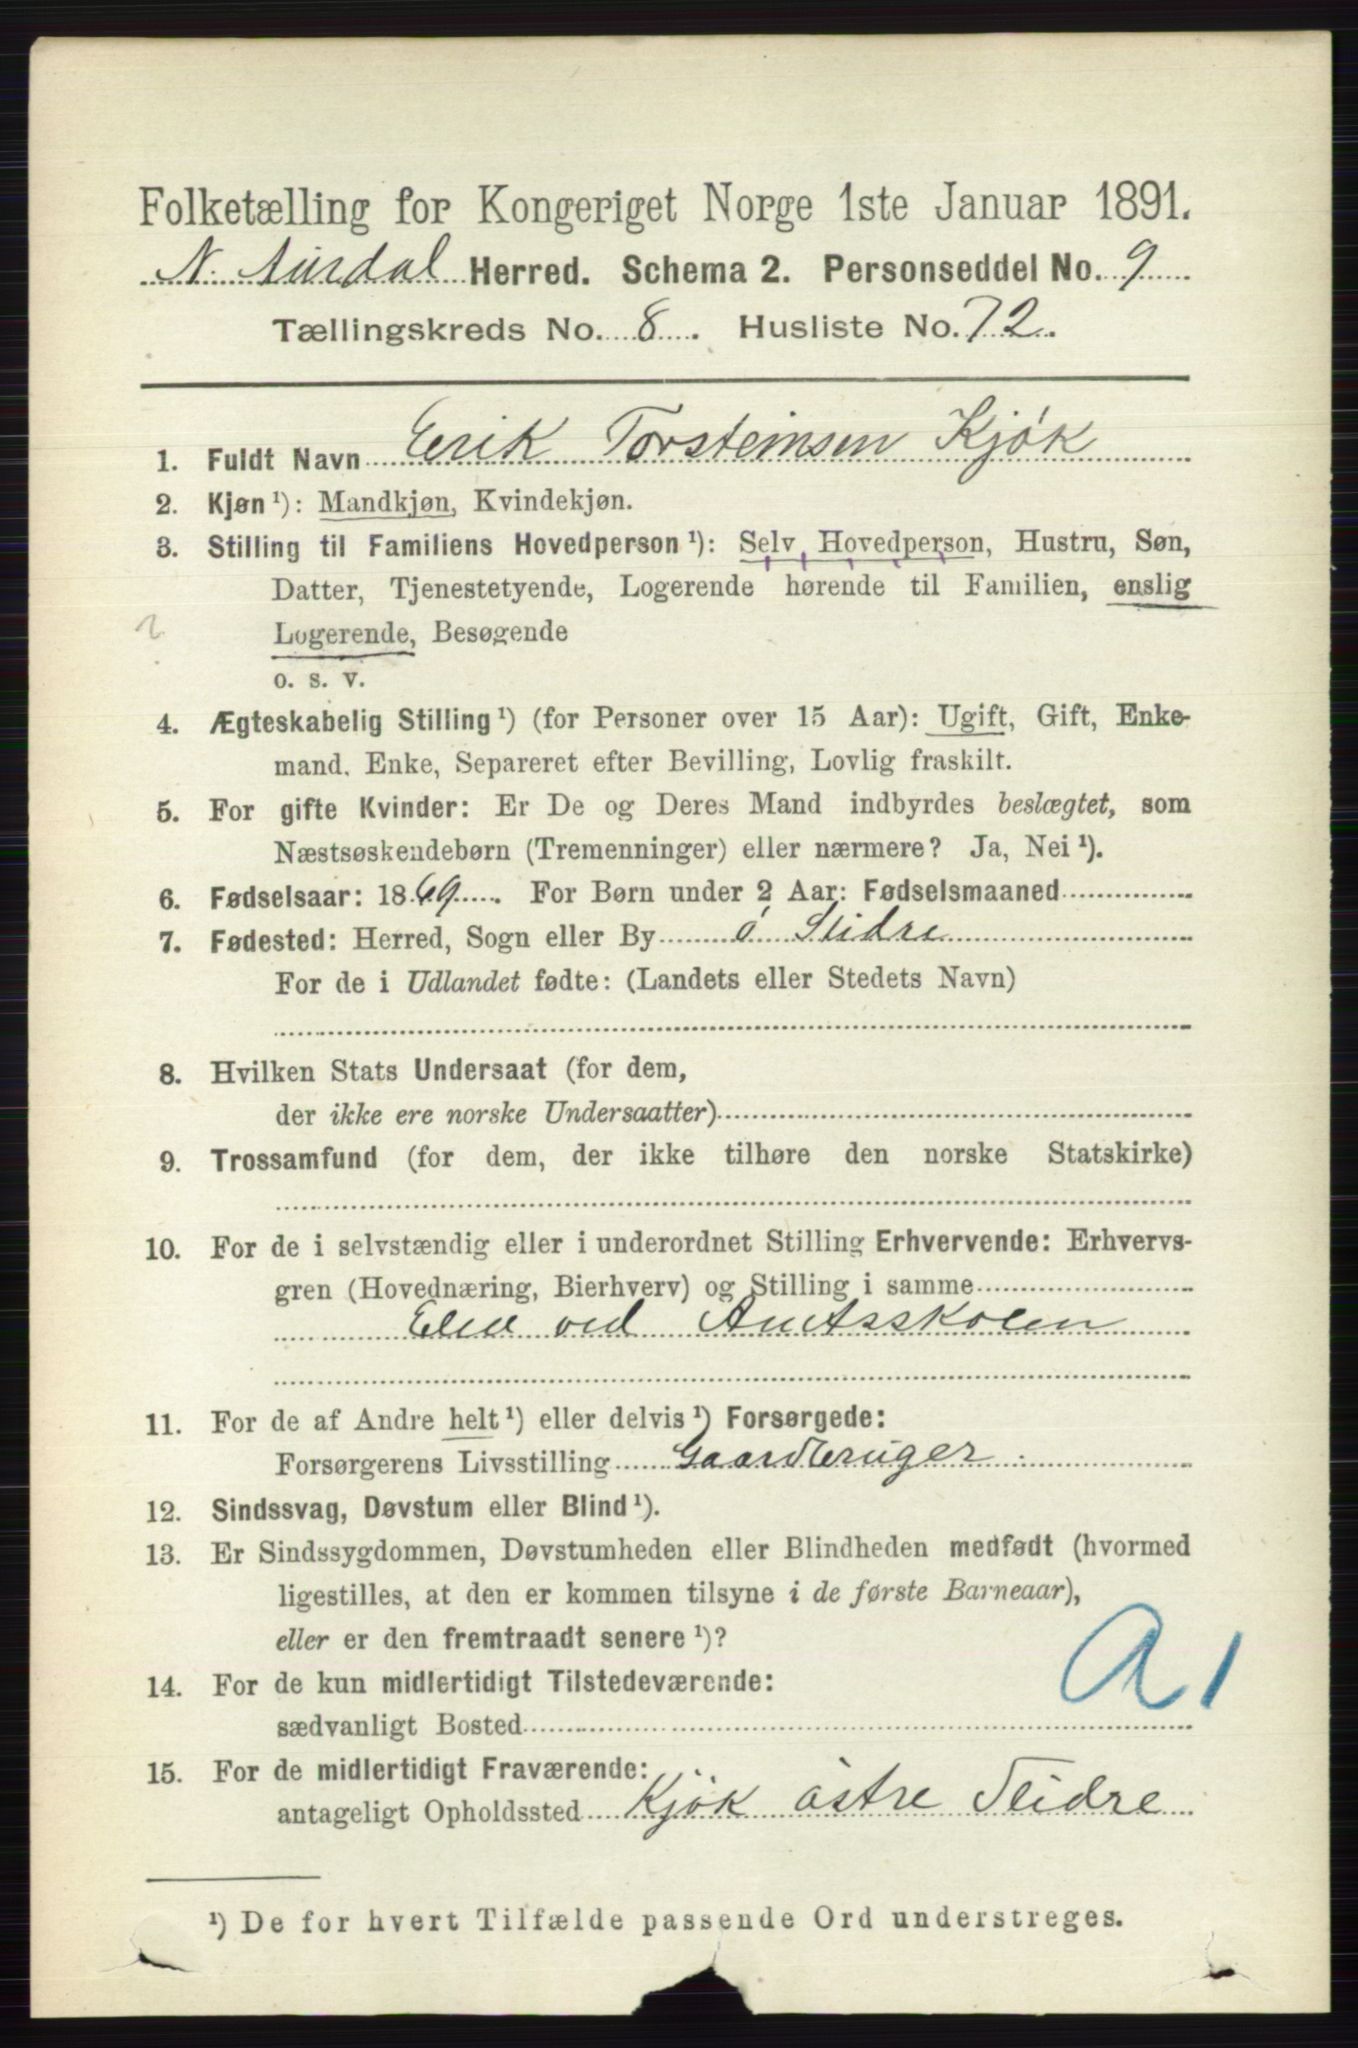 Folketælling for Kongeriget Norge 1ste Januar 1891.
N. Aurdal Herred. Schema 2. Personseddel No. 9
Tællingskreds No. 8. Husliste No. 72.
1. Fuldt Navn Erik Torsteinsen Kjøk
2. Kjøn ¹): Mandkjøn, Kvindekjøn.
3. Stilling til Familiens Hovedperson ¹): Selv Hovedperson, Hustru, Søn,
Datter, Tjenestetyende, Logerende hørende til Familien, enslig
Logerende, Besøgende
o. s. v.
4. Ægteskabelig Stilling ¹) (for Personer over 15 Aar): Ugift, Gift, Enke-
mand, Enke, Separeret efter Bevilling, Lovlig fraskilt.
5. For gifte Kvinder: Er De og Deres Mand indbyrdes beslægtet, som
Næstsøskendebørn (Tremenninger) eller nærmere? Ja, Nei ¹).
6. Fødselsaar: 1869. For Børn under 2 Aar: Fødselsmaaned
7. Fødested: Herred, Sogn eller By ø Slidre
For de i Udlandet fødte: (Landets eller Stedets Navn)
8. Hvilken Stats Undersaat (for dem,
der ikke ere norske Undersaatter)
9. Trossamfund (for dem, der ikke tilhøre den norske Statskirke)
10. For de i selvstændig eller i underordnet Stilling Erhvervende: Erhvervs-
gren (Hovednæring, Bierhverv) og Stilling i samme
Elev ved Amtsskolen
11. For de af Andre helt ¹) eller delvis ¹) Forsørgede:
Forsørgerens Livsstilling Gaardbruger
12. Sindssvag, Døvstum eller Blind ¹).
13. Er Sindssygdommen, Døvstumheden eller Blindheden medfødt (hvormed
ligestilles, at den er kommen tilsyne i de første Barneaar),
eller er den fremtraadt senere ¹)?
A1
14. For de kun midlertidigt Tilstedeværende:
sædvanligt Bosted
15. For de midlertidigt Fraværende:
antageligt Opholdssted Kjøk østre Slidre
¹) De for hvert Tilfælde passende Ord understreges.